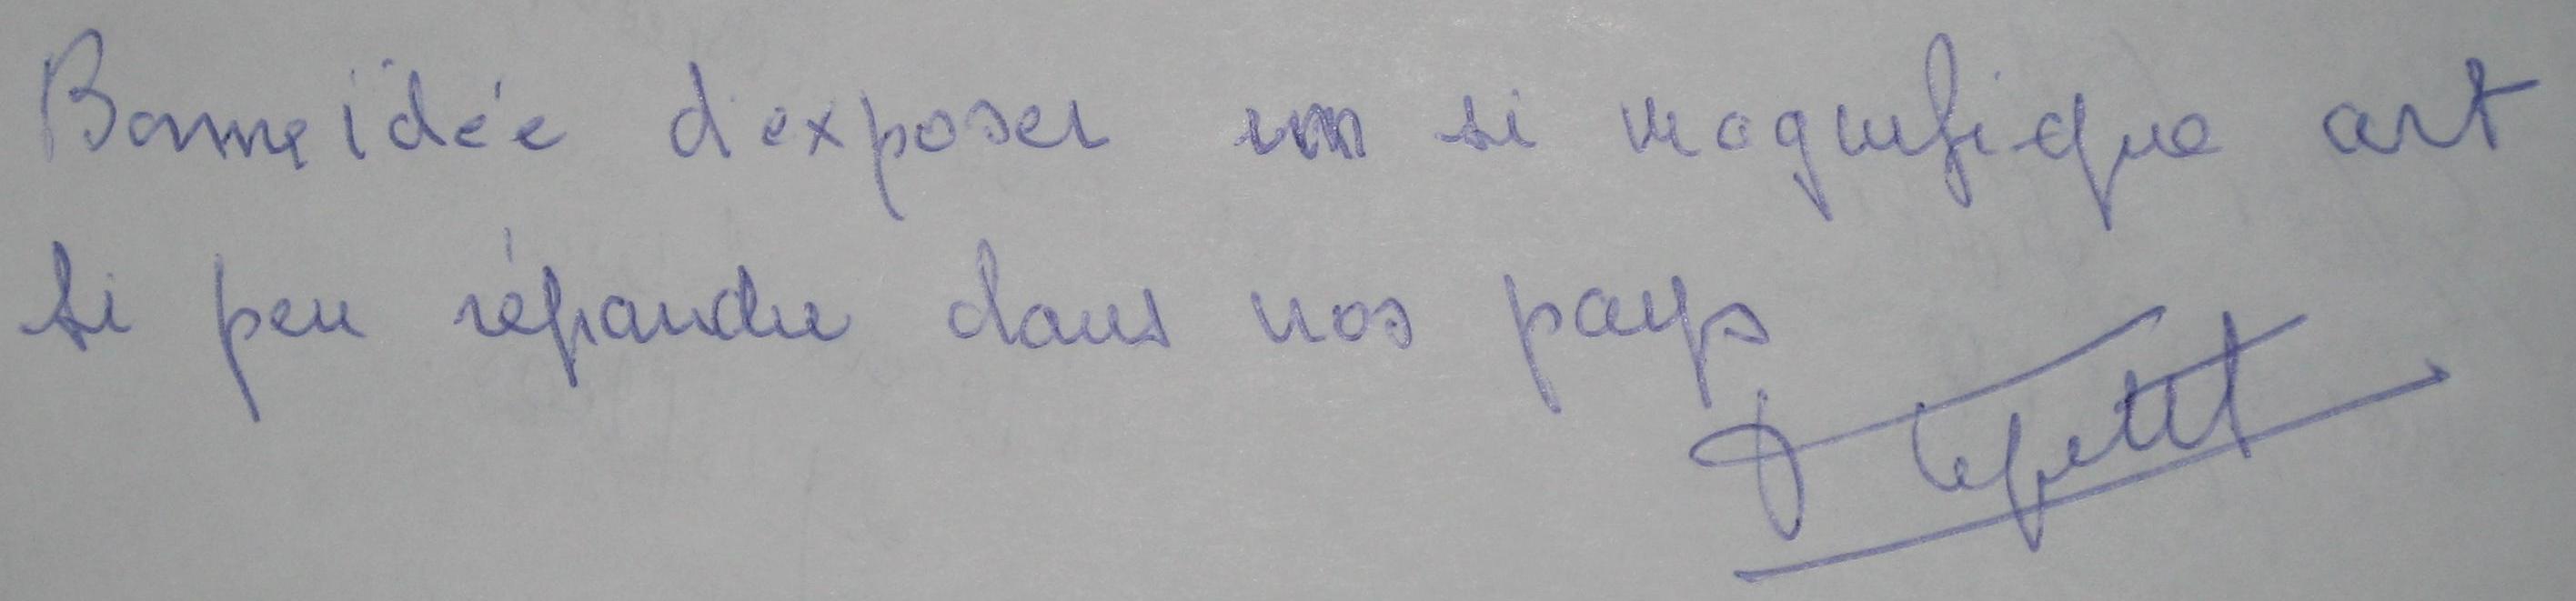 Bonne idée d'exposer un si magnifique art
si peu répandu dans nos pays
Lepetit